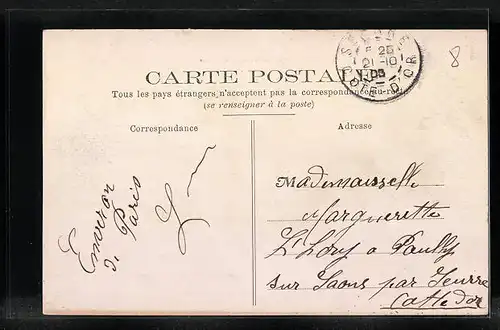 8
CARTE POSTALE
Tous les pays étrangers n'acceptent pas la correspondance au-
(se renseigner à la poste)
Correspondance
Adresse
Environ
d. Paris
Mademoisselle
Marguerette
a Pouilly
sur Saons par Seurre
Cotte dor
21-10
COTE D'OR